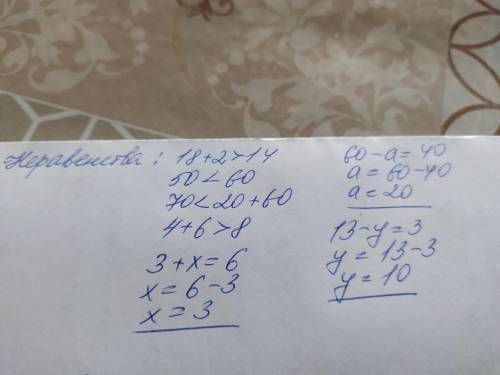 Неравенства: 18+2>14
50<60
70<20+60
4+6>8
3+x=6
x=6-3
x=3
60-a=40
a=60-40
a=20
13-y=3
y=13-3
y=10